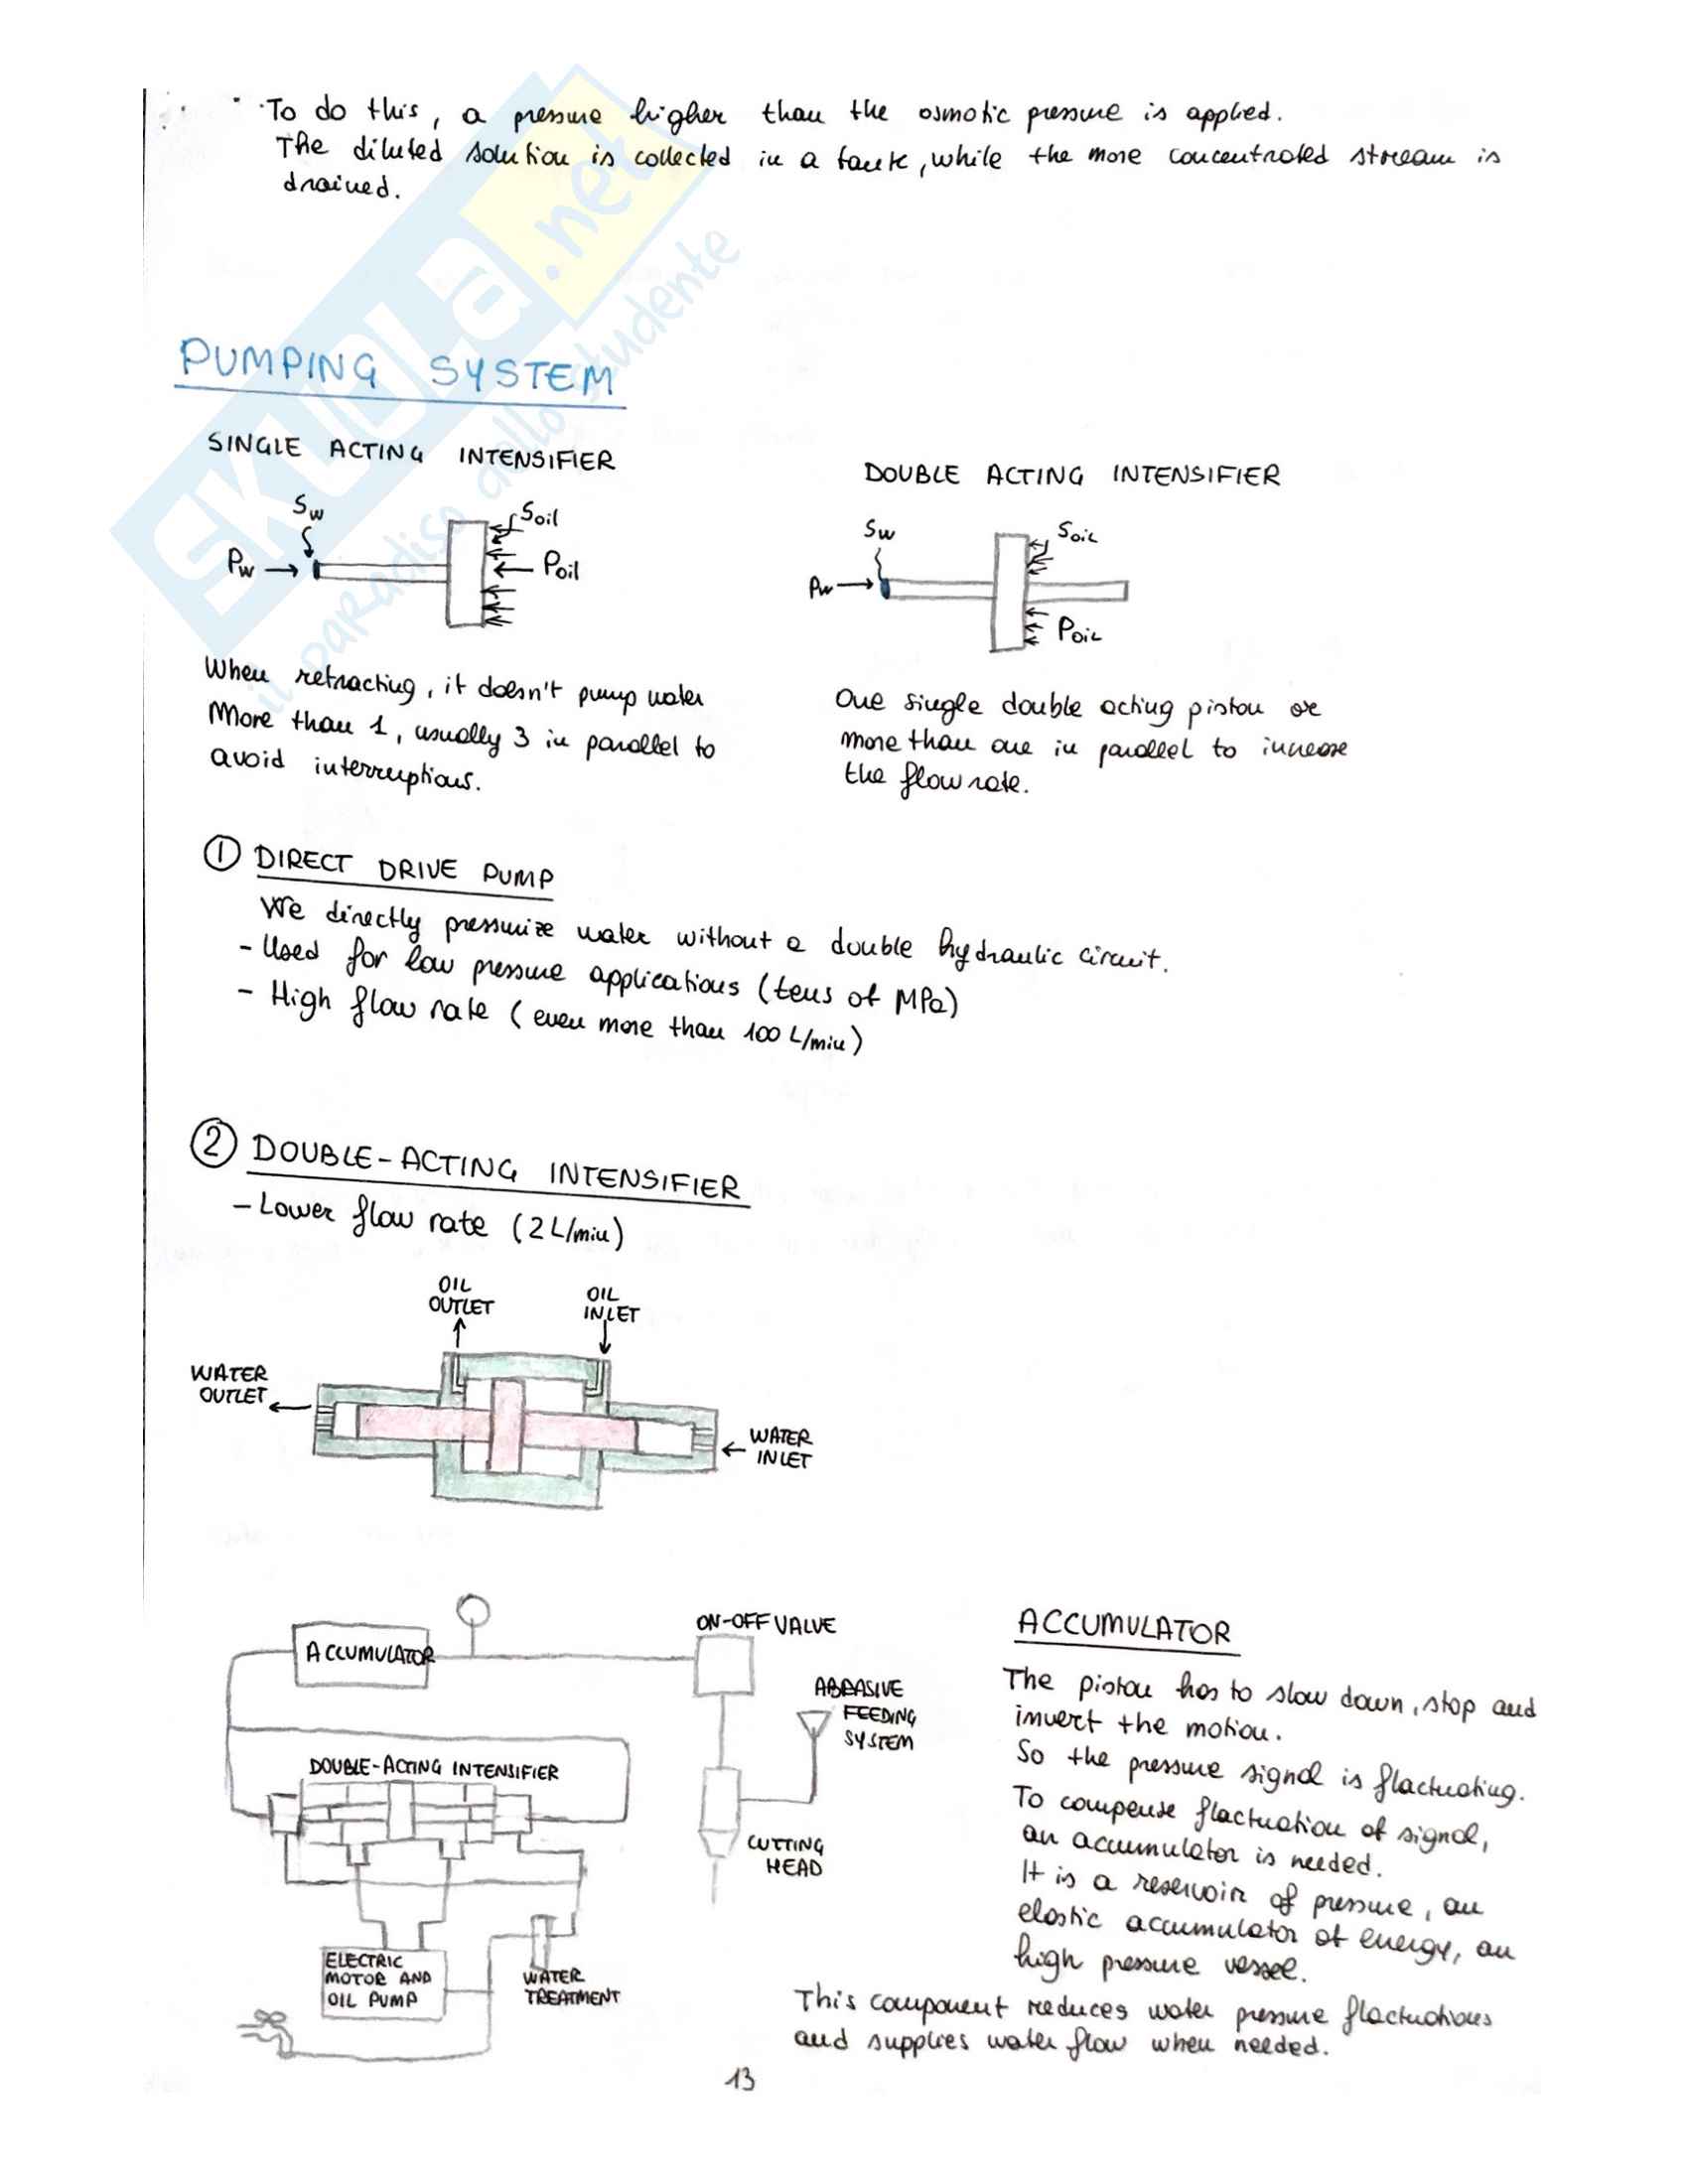 To do this, a pressure higher than the osmotic pressure is applied.
The diluted solution is collected in a tank, while the more concentrated stream is
drained.
SKUOLA.net
il paradiso dello studente
PUMPING SYSTEM
SINGLE ACTING INTENSIFIER
Sw
Soil
Pw
Poil
When retracting, it doesn't pump water
More than 1, usually 3 in parallel to
avoid interruptions.
DOUBLE ACTING INTENSIFIER
Sw
Soil
Pw
Poil
One single double acting piston or
more than one in parallel to increase
the flow rate.
① DIRECT DRIVE PUMP
We directly pressurize water without a double hydraulic circuit.
- Used for low pressure applications (tens of MPa)
- High flow rate (even more than 100 L/min)
② DOUBLE-ACTING INTENSIFIER
- Lower flow rate (2 L/min)
OIL
OUTLET
OIL
INLET
WATER
OUTLET
WATER
INLET
ACCUMULATOR
ON-OFF VALVE
ABRASIVE
FEEDING
SYSTEM
DOUBLE-ACTING INTENSIFIER
CUTTING
HEAD
ELECTRIC
MOTOR AND
OIL PUMP
WATER
TREATMENT
ACCUMULATOR
The piston has to slow down, stop and
invert the motion.
So the pressure signal is flactuating.
To compense flactuation of signal,
an accumulator is needed.
It is a reservoir of pressure, an
elastic accumulator of energy, an
high pressure vessel.
This component reduces water pressure flactuations
and supplies water flow when needed.
13